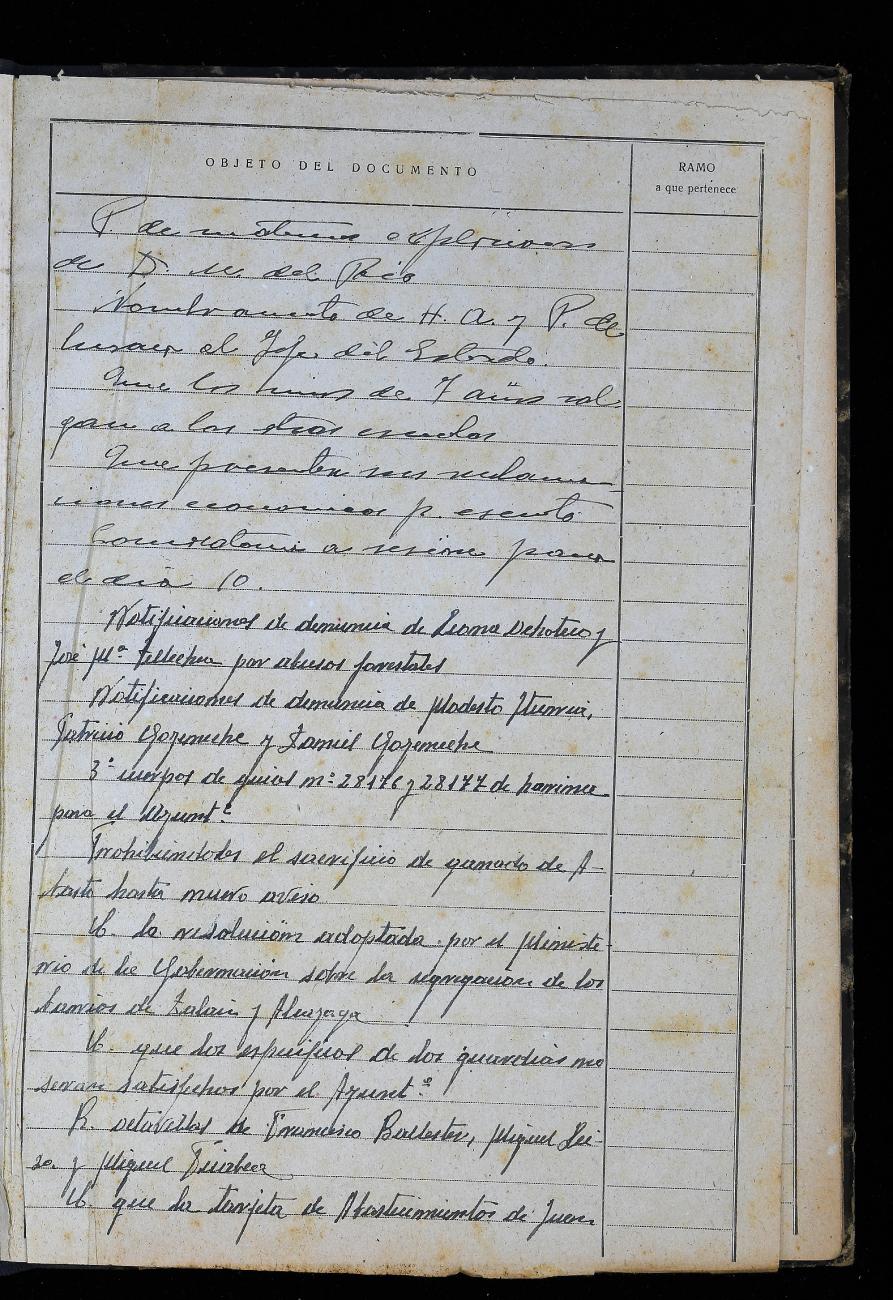 OBJETO DEL DOCUMENTO
RAMO
a que pertenece
P de materias explosivas
de D. M. del Rio
Nombramiento de H. A. y P. de
al Jefe del Estado.
Que los niños de 7 años sal
gan a las otras escuelas
Que presenten sus reclama-
ciones economicas p. escrito
Convocatoria a sesion para
el dia 10.
Notificaciones de denuncia de y
José Mª Tellechea por abusos forestales
Notificaciones de denuncia de Modesto Iturria,
Patricio Goyeneche y Daniel Goyeneche
3º cuerpos de guias nº 28176 y 28177 de harina
para el Ayuntº
Prohibiendoles el sacrificio de ganado de A-
basto hasta nuevo aviso
U. la resolución adoptada por el Ministe-
rio de la Gobernación sobre la segregación de los
barrios de Zalain y Alcayaga
U. que los especificos de los guardias no
seran satisfechos por el Ayuntº
R. octavillas de Francisco Ballester, Miguel Lei-
za y Miguel
U. que la tarjeta de Abastecimientos de Juan